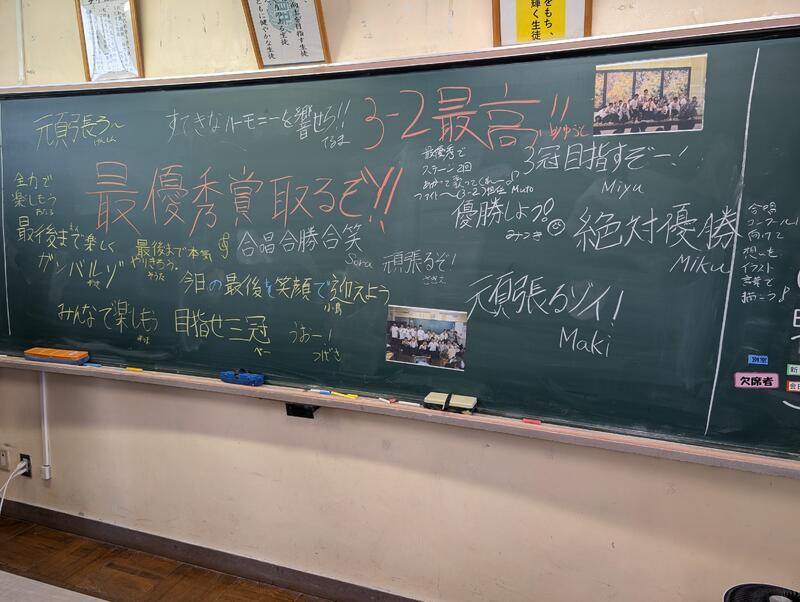 向上を目指す生徒
ともに健やかな生徒
をもち、
輝く生徒
頑張ろ〜
すてきなハーモニーを響せろ!!
てるま
3-2最高!!
ゆうと
全力で
楽しもう
最優秀賞取るぞ!!
最優秀で
ステージ2回
(3-2)担任 Muto
3冠目指すぞー!!
Miyu
優勝しよう!
みつき
絶対優勝
Miku
最後まで楽しく
ガンバルゾ
最後まで本気
やりきろう。
そうた
合唱合勝合笑
Sora
頑張るぞ!
今日の最後を笑顔で迎えよう
小島
頑張るゾイ!
Maki
みんなで楽しもう
目指せ三冠
べー
うおー!
つげき
合唱
コンクールに
向けて
想いを
イラスト
言葉で
描こう♪
別室
欠席者